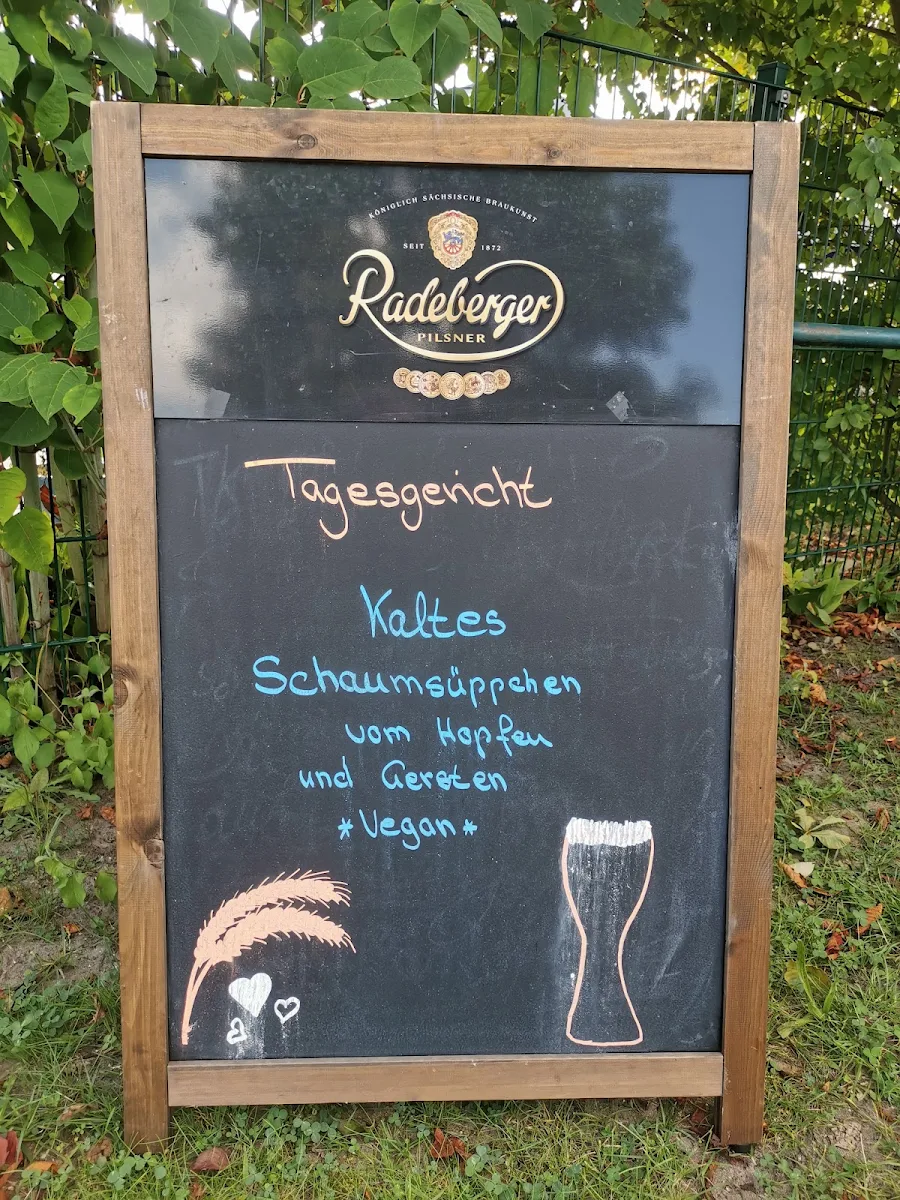 KÖNIGLICH SÄCHSISCHE BRAUKUNST
SEIT 1872
Radeberger
PILSNER
Tagesgericht
Kaltes
Schaumsüppchen
vom Hopfen
und Gersten
*Vegan*